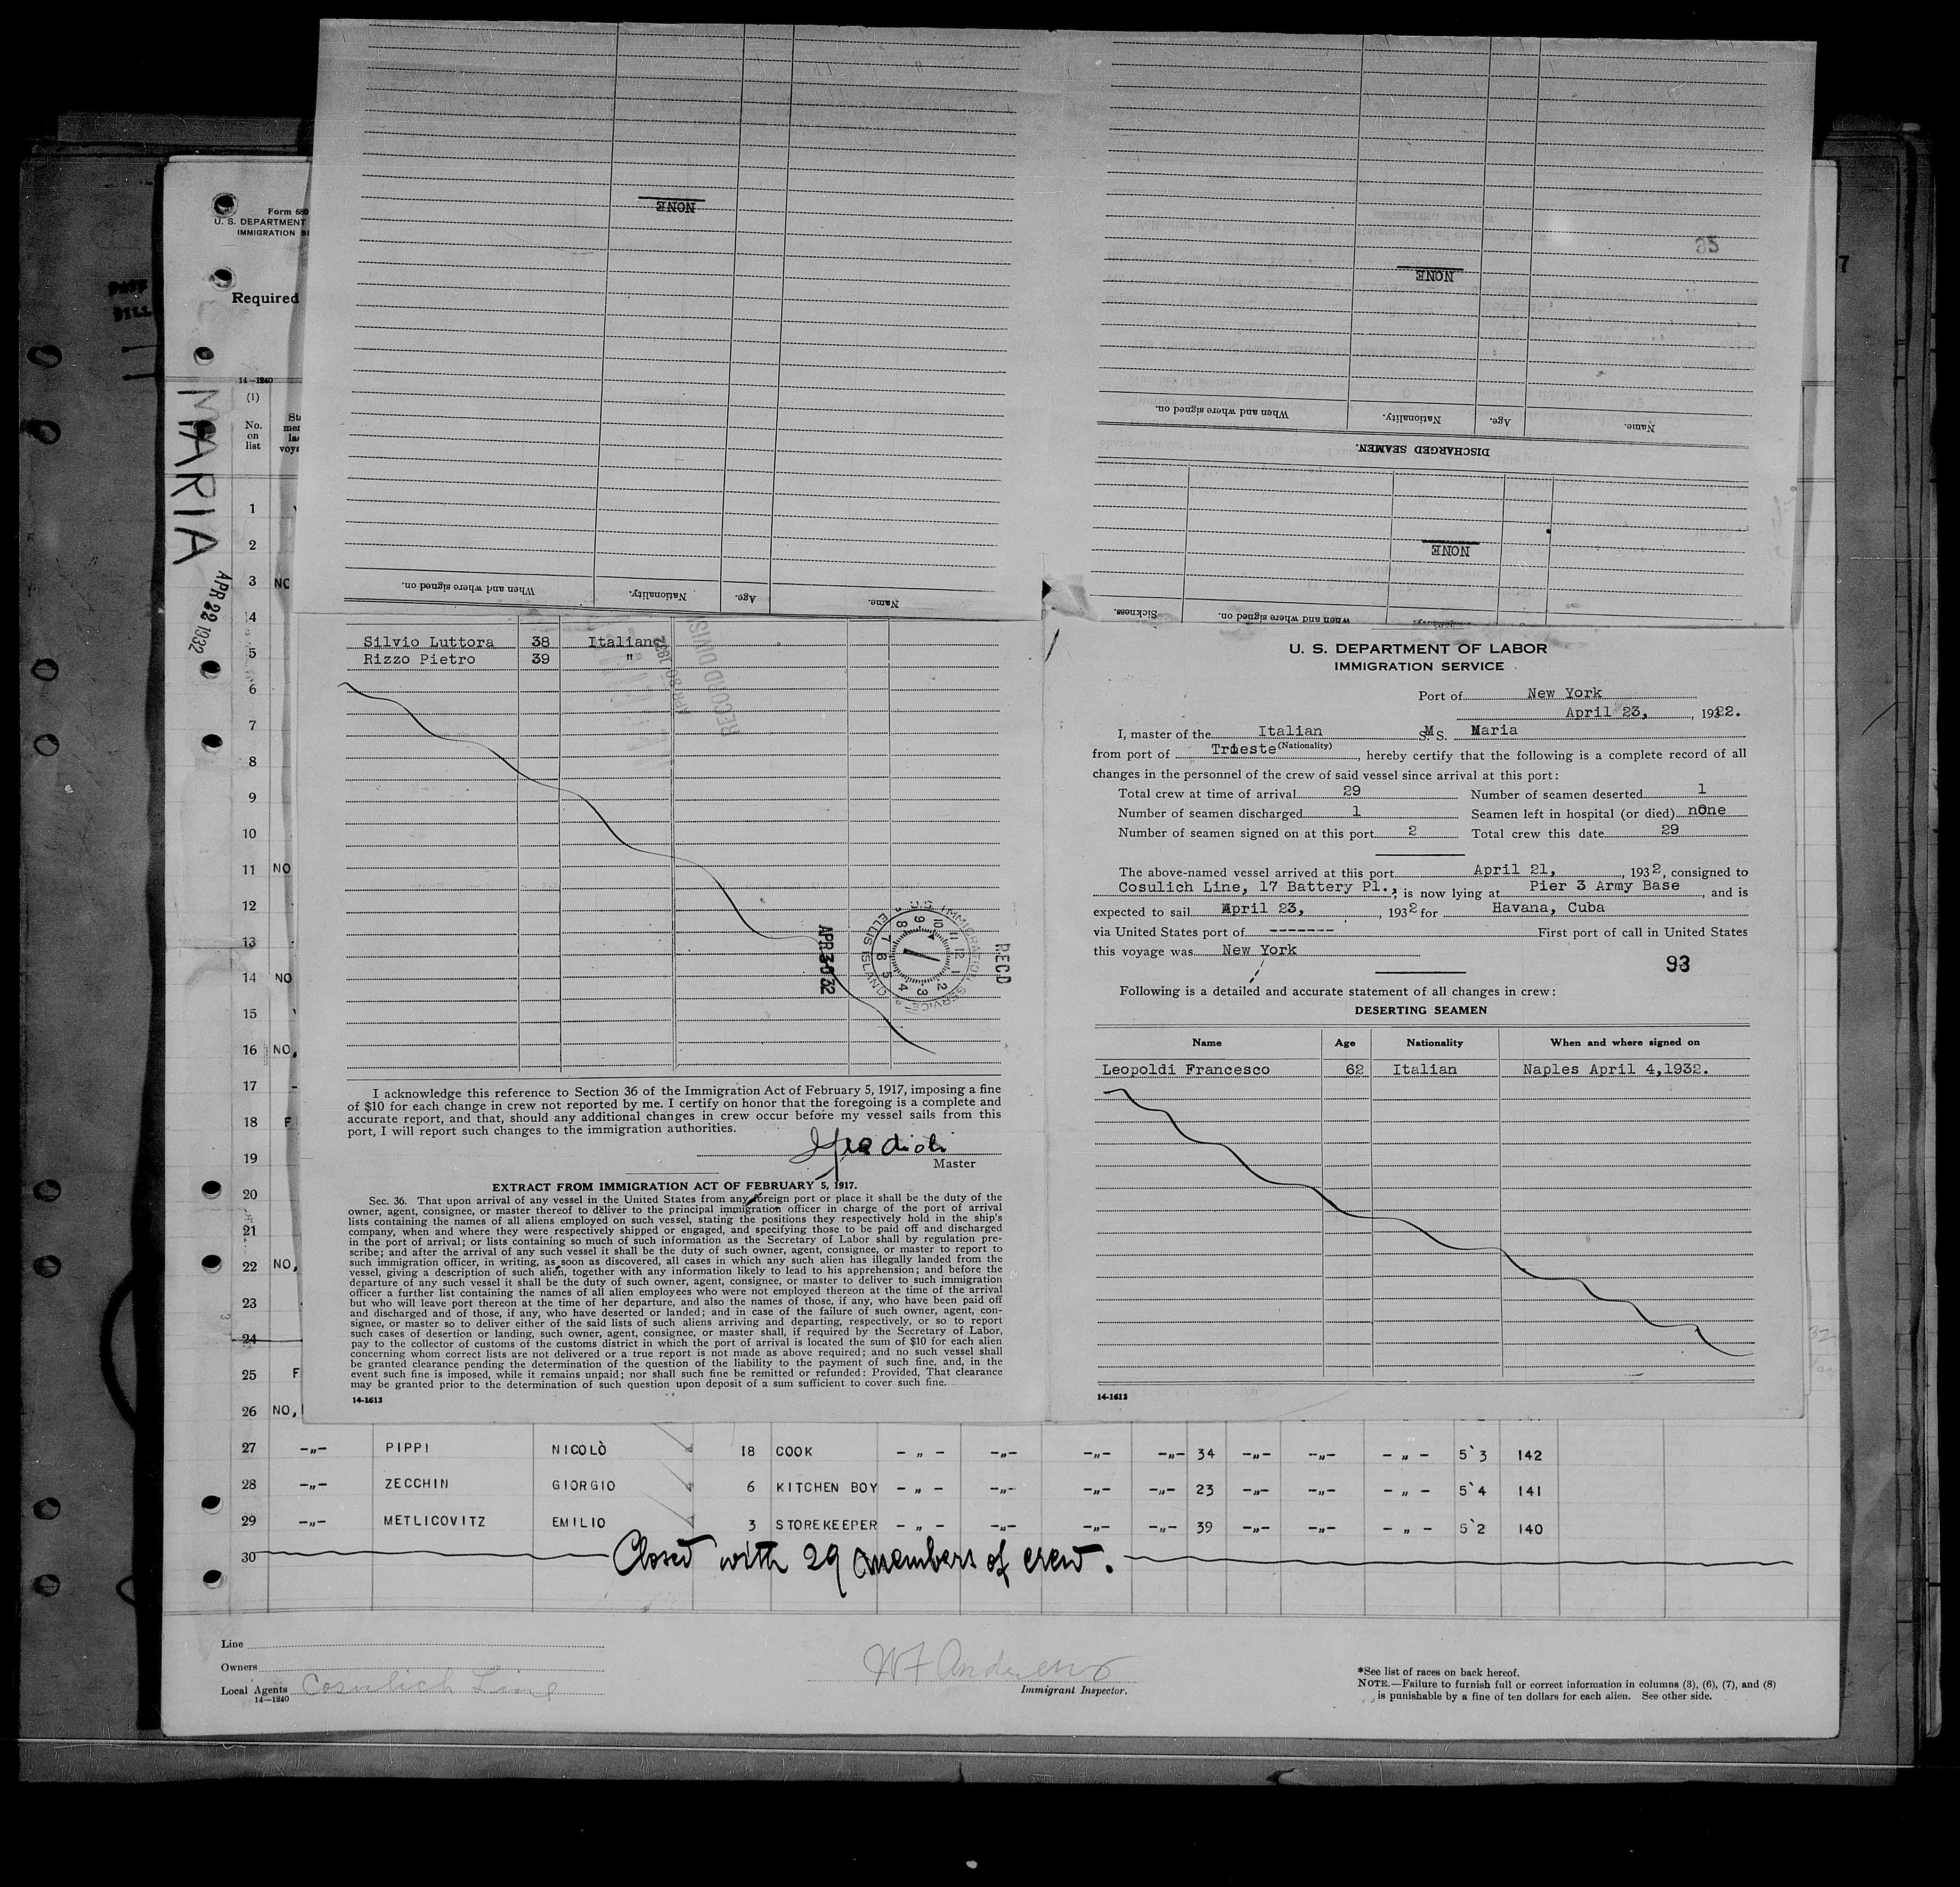 Form 680
U. S. DEPARTMENT
IMMIGRATION SE
Required
14-1240
(1)
No.
on
list
MARIA
APR 22 1932
NONE
When and where signed on.
Nationality.
Age.
Name.
NONE
When and where signed on.
Nationality.
Age.
Name.
DISCHARGED SEAMEN.
NONE
Sickness.
When and where signed on.
Silvio Luttora 38 Italian
Rizzo Pietro 39 "
APR 30 1932
RECORD DIVIS
U.S. IMMIGRATION SERVICE
ELLIS ISLAND
APR 30 32
REC'D
I acknowledge this reference to Section 36 of the Immigration Act of February 5, 1917, imposing a fine
of $10 for each change in crew not reported by me. I certify on honor that the foregoing is a complete and
accurate report, and that, should any additional changes in crew occur before my vessel sails from this
port, I will report such changes to the immigration authorities.
Master
EXTRACT FROM IMMIGRATION ACT OF FEBRUARY 5, 1917.
Sec. 36. That upon arrival of any vessel in the United States from any foreign port or place it shall be the duty of the
owner, agent, consignee, or master thereof to deliver to the principal immigration officer in charge of the port of arrival
lists containing the names of all aliens employed on such vessel, stating the positions they respectively hold in the ship's
company, when and where they were respectively shipped or engaged, and specifying those to be paid off and discharged
in the port of arrival; or lists containing so much of such information as the Secretary of Labor shall by regulation pre-
scribe; and after the arrival of any such vessel it shall be the duty of such owner, agent, consignee, or master to report to
such immigration officer, in writing, as soon as discovered, all cases in which any such alien has illegally landed from the
vessel, giving a description of such alien, together with any information likely to lead to his apprehension; and before the
departure of any such vessel it shall be the duty of such owner, agent, consignee, or master to deliver to such immigration
officer a further list containing the names of all alien employees who were not employed thereon at the time of the arrival
but who will leave port thereon at the time of her departure, and also the names of those, if any, who have been paid off
and discharged and of those, if any, who have deserted or landed; and in case of the failure of such owner, agent, con-
signee, or master so to deliver either of the said lists of such aliens arriving and departing, respectively, or so to report
such cases of desertion or landing, such owner, agent, consignee, or master shall, if required by the Secretary of Labor,
pay to the collector of customs of the customs district in which the port of arrival is located the sum of $10 for each alien
concerning whom correct lists are not delivered or a true report is not made as above required; and no such vessel shall
be granted clearance pending the determination of the question of the liability to the payment of such fine, and, in the
event such fine is imposed, while it remains unpaid; nor shall such fine be remitted or refunded: Provided, That clearance
may be granted prior to the determination of such question upon deposit of a sum sufficient to cover such fine.
14-1613
U. S. DEPARTMENT OF LABOR
IMMIGRATION SERVICE
Port of New York
April 23, , 19322.
I, master of the Italian M S. Maria
(Nationality)
from port of Trieste, hereby certify that the following is a complete record of all
changes in the personnel of the crew of said vessel since arrival at this port:
Total crew at time of arrival 29 Number of seamen deserted 1
Number of seamen discharged 1 Seamen left in hospital (or died) none
Number of seamen signed on at this port 2 Total crew this date 29
The above-named vessel arrived at this port April 21, , 1932, consigned to
Cosulich Line, 17 Battery Pl., ; is now lying at Pier 3 Army Base, and is
expected to sail April 23, , 1932 for Havana, Cuba
via United States port of ------- First port of call in United States
this voyage was New York
93
Following is a detailed and accurate statement of all changes in crew:
DESERTING SEAMEN
Name Age Nationality When and where signed on
Leopoldi Francesco 62 Italian Naples April 4,1932.
14-1613
1
2
3 NO
4
5
6
7
8
9
10
11 NO
12
13
14 NO
15
16 NO,
17
18 F
19
20
21
22 NO,
23
24
25 F
26 NO,
27 -"- PIPPI NICOLÒ 18 COOK - " - -"- -"- -"- 34 -"- -"- - " - 5`3 142
28 -"- ZECCHIN GIORGIO 6 KITCHEN BOY - " - -"- -"- -"- 23 -"- -"- - " - 5`4 141
29 -"- METLICOVITZ EMILIO 3 STOREKEEPER - " - -"- -"- -"- 39 -"- -"- - " - 5`2 140
30 Closed with 29 members of crew.
Line
Owners
Local Agents Cosulich Line
14-1240
W F Andrews
Immigrant Inspector.
*See list of races on back hereof.
NOTE.—Failure to furnish full or correct information in columns (3), (6), (7), and (8)
is punishable by a fine of ten dollars for each alien. See other side.